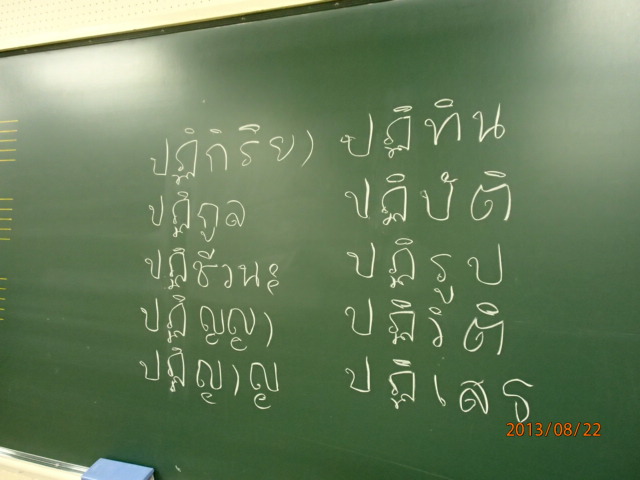 ปฏิกิริยา
ปฏิกูล
ปฏิชีวนะ
ปฏิญญา
ปฏิญาณ
ปฏิทิน
ปฏิบัติ
ปฏิรูป
ปฏิวัติ
ปฏิเสธ
2013/08/22